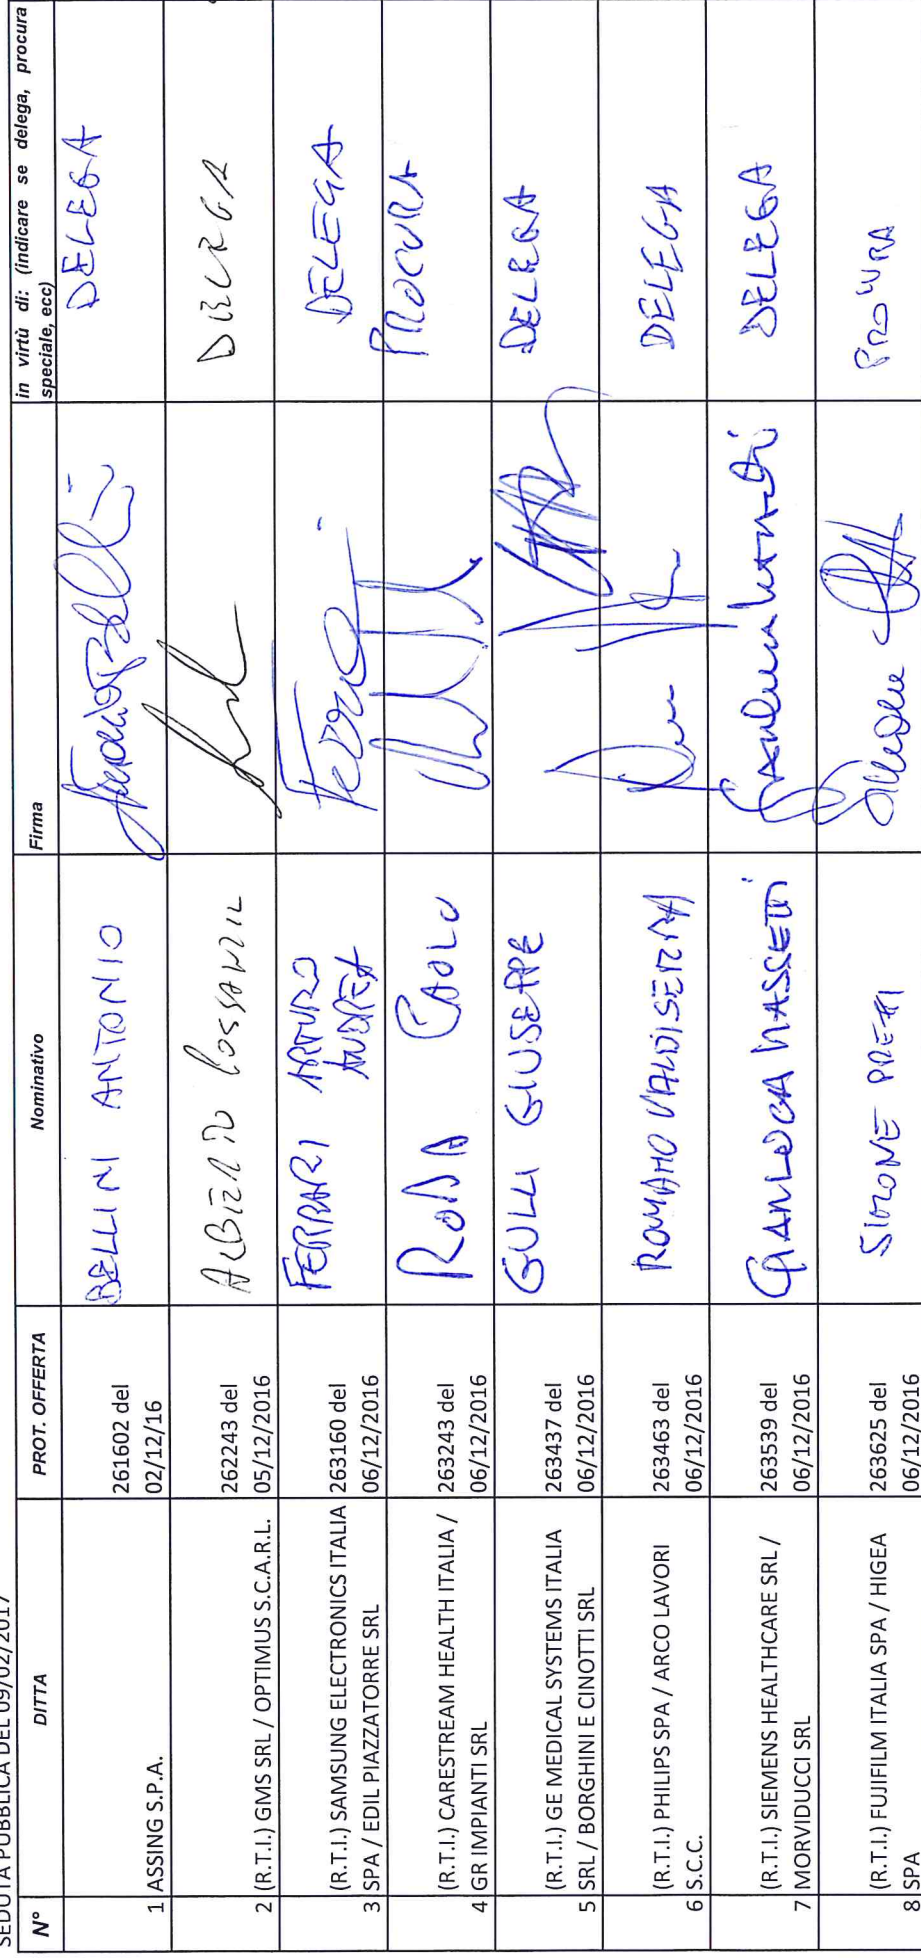 SEDUTA PUBBLICA DEL 09/02/2017
N° DITTA PROT. OFFERTA Nominativo Firma in virtù di: (indicare se delega, procura
speciale, ecc)
1 ASSING S.P.A. 261602 del
02/12/16 BELLINI ANTONIO DELEGA
2 (R.T.I.) GMS SRL / OPTIMUS S.C.A.R.L. 262243 del
05/12/2016 DELEGA
(R.T.I.) SAMSUNG ELECTRONICS ITALIA
3 SPA / EDIL PIAZZATORRE SRL 263160 del
06/12/2016 FERRARI ARTURO
ANDREA DELEGA
(R.T.I.) CARESTREAM HEALTH ITALIA /
4 GR IMPIANTI SRL 263243 del
06/12/2016 RODA PAOLO PROCURA
(R.T.I.) GE MEDICAL SYSTEMS ITALIA
5 SRL / BORGHINI E CINOTTI SRL 263437 del
06/12/2016 GULLI GIUSEPPE DELEGA
(R.T.I.) PHILIPS SPA / ARCO LAVORI
6 S.C.C. 263463 del
06/12/2016 ROMANO VALDISERRA DELEGA
(R.T.I.) SIEMENS HEALTHCARE SRL /
7 MORVIDUCCI SRL 263539 del
06/12/2016 GIANLUCA MASSETTI DELEGA
(R.T.I.) FUJIFILM ITALIA SPA / HIGEA
8 SPA 263625 del
06/12/2016 SIMONE Simone PROCURA